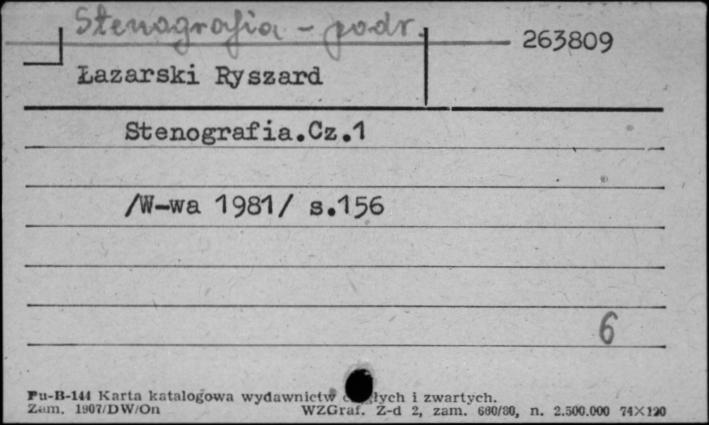 Stenografia - podr.
263809
Łazarski Ryszard
Stenografia.Cz.1
/W-wa 1981/ s.156
6
Pu-B-144 Karta katalogowa wydawnictw ciągłych i zwartych.
Zam. 1907/DW/On WZGraf. Z-d 2, zam. 680/80, n. 2.500.000 74×120